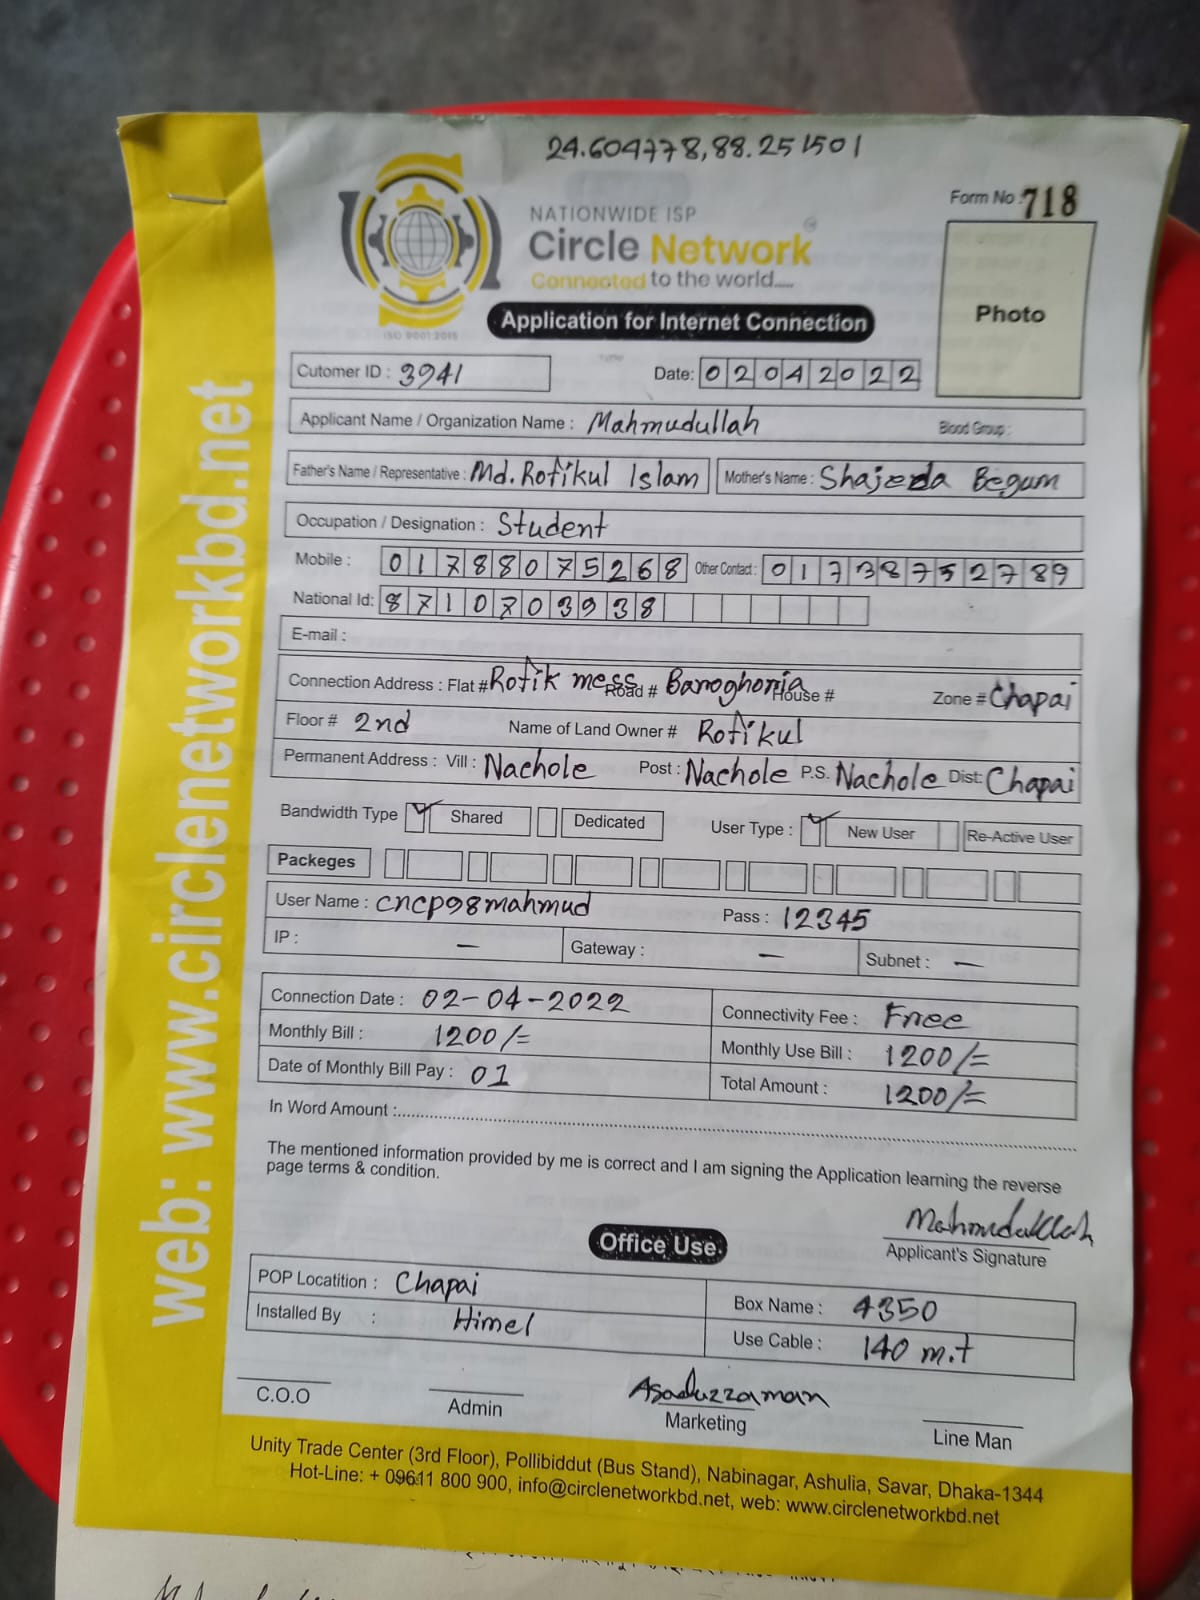 24.604778,88.251501
Form No : 718
NATIONWIDE ISP
Circle Network
Connected to the world.....
ISO 9001:2015
Application for Internet Connection
Photo
Cutomer ID : 3941
Date: 02042022
Applicant Name / Organization Name : Mahmudullah
Blood Group :
Father's Name / Representative : Md. Rofikul Islam
Mother's Name : Shajeda Begum
Occupation / Designation : Student
Mobile : 01788075268 Other Contact : 01738752789
National Id: 8710703938
E-mail :
Connection Address : Flat # Rofik mess Road # Baroghoria House # Zone # Chapai
Floor # 2nd Name of Land Owner # Rofikul
Permanent Address : Vill : Nachole Post : Nachole P.S. Nachole Dist: Chapai
Bandwidth Type Shared Dedicated User Type : New User Re-Active User
Packeges
User Name : cncp98mahmud Pass : 12345
IP : — Gateway : — Subnet : —
Connection Date : 02-04-2022 Connectivity Fee : Free
Monthly Bill : 1200/= Monthly Use Bill : 1200/=
Date of Monthly Bill Pay : 01 Total Amount : 1200/=
In Word Amount :
The mentioned information provided by me is correct and I am signing the Application learning the reverse
page terms & condition.
Mahmudullah
Applicant's Signature
Office Use.
POP Locatition : Chapai Box Name : 4350
Installed By : Himel Use Cable : 140 m.t
Asaduzzaman
C.O.O Admin Marketing Line Man
Unity Trade Center (3rd Floor), Pollibiddut (Bus Stand), Nabinagar, Ashulia, Savar, Dhaka-1344
Hot-Line: + 09611 800 900, info@circlenetworkbd.net, web: www.circlenetworkbd.net
web: www.circlenetworkbd.net